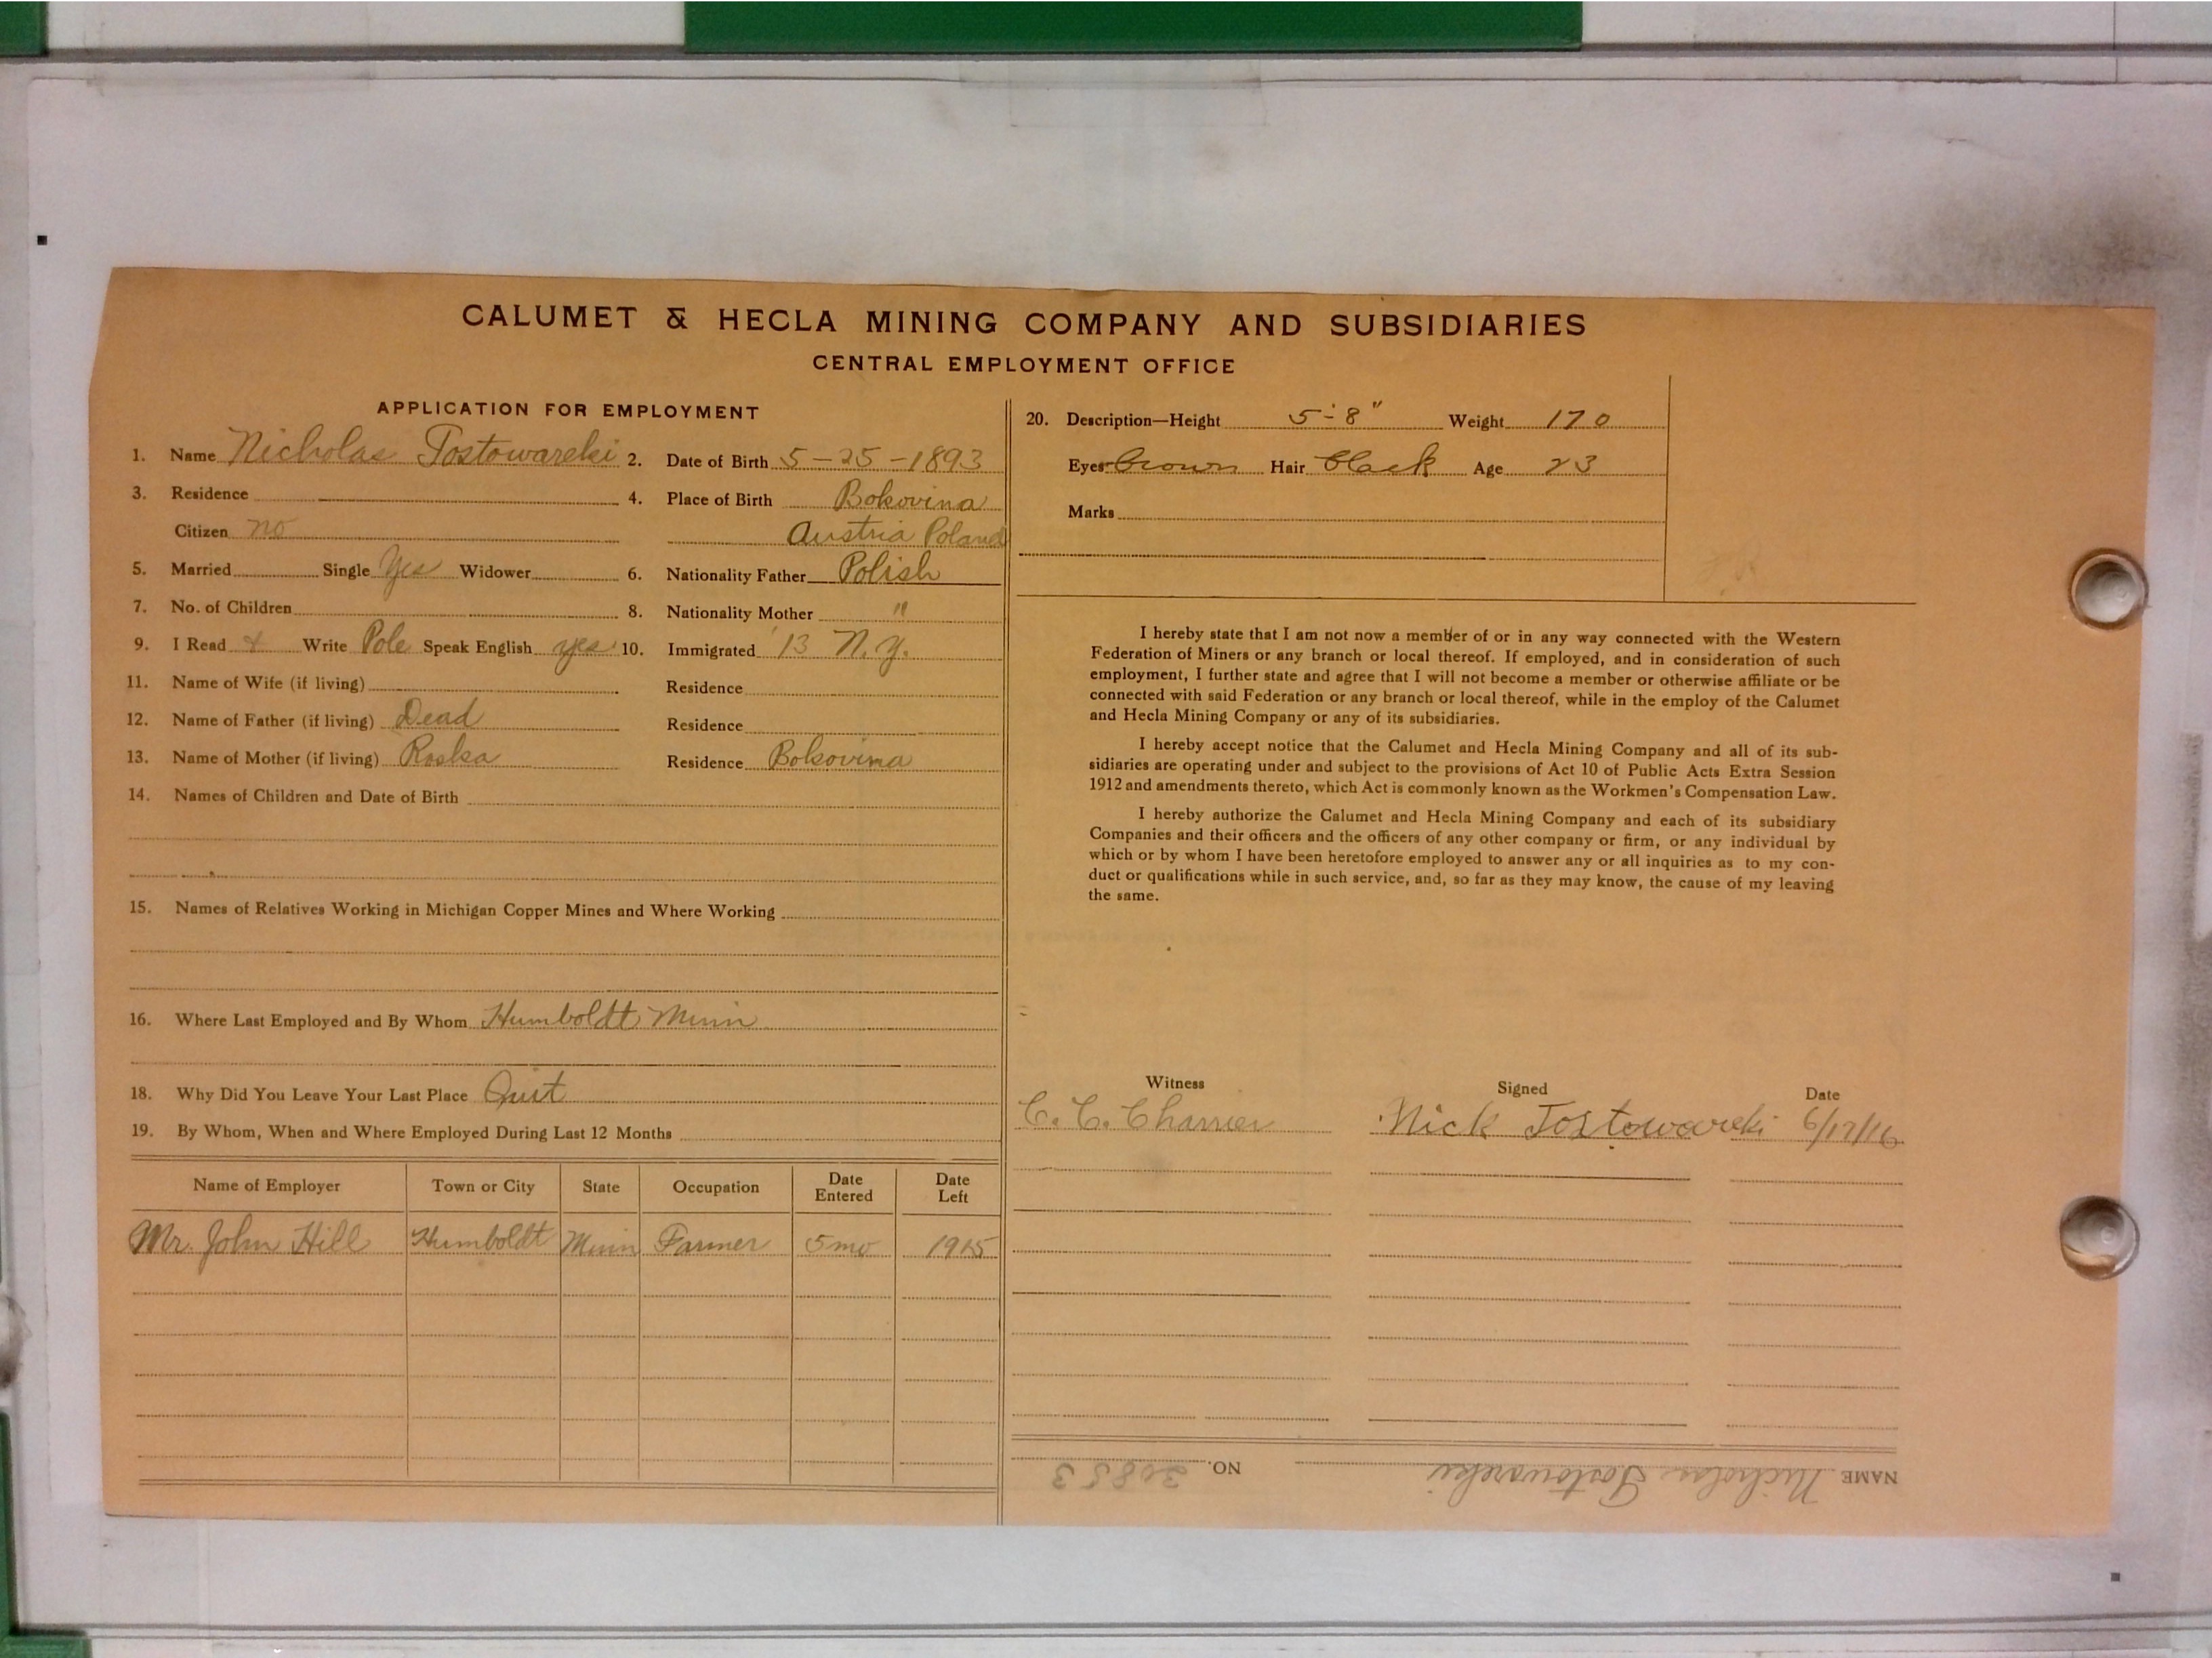 CALUMET & HECLA MINING COMPANY AND SUBSIDIARIES
CENTRAL EMPLOYMENT OFFICE
APPLICATION FOR EMPLOYMENT
1. Name Nicholas Tostowareki 2. Date of Birth 5-25-1893
3. Residence 4. Place of Birth Bokovina
Citizen no Austria Poland
5. Married Single Yes Widower 6. Nationality Father Polish
7. No. of Children 8. Nationality Mother "
9. I Read & Write Pole Speak English yes 10. Immigrated '13 N.Y.
11. Name of Wife (if living) Residence
12. Name of Father (if living) Dead Residence
13. Name of Mother (if living) Roska Residence Bokovina
14. Names of Children and Date of Birth
15. Names of Relatives Working in Michigan Copper Mines and Where Working
16. Where Last Employed and By Whom Humboldt Minn
18. Why Did You Leave Your Last Place Quit
19. By Whom, When and Where Employed During Last 12 Months
Name of Employer Town or City State Occupation Date Entered Date Left
Mr. John Hill Humboldt Minn Farmer 5 mo 1915
20. Description—Height 5'-8" Weight 170
Eyes brown Hair black Age 23
Marks
I hereby state that I am not now a member of or in any way connected with the Western
Federation of Miners or any branch or local thereof. If employed, and in consideration of such
employment, I further state and agree that I will not become a member or otherwise affiliate or be
connected with said Federation or any branch or local thereof, while in the employ of the Calumet
and Hecla Mining Company or any of its subsidiaries.
I hereby accept notice that the Calumet and Hecla Mining Company and all of its sub-
sidiaries are operating under and subject to the provisions of Act 10 of Public Acts Extra Session
1912 and amendments thereto, which Act is commonly known as the Workmen's Compensation Law.
I hereby authorize the Calumet and Hecla Mining Company and each of its subsidiary
Companies and their officers and the officers of any other company or firm, or any individual by
which or by whom I have been heretofore employed to answer any or all inquiries as to my con-
duct or qualifications while in such service, and, so far as they may know, the cause of my leaving
the same.
Witness Signed Date
C. C. Charrier Nick Tostowareki 6/17/16
NAME Nicholas Tostowareki NO. 30853